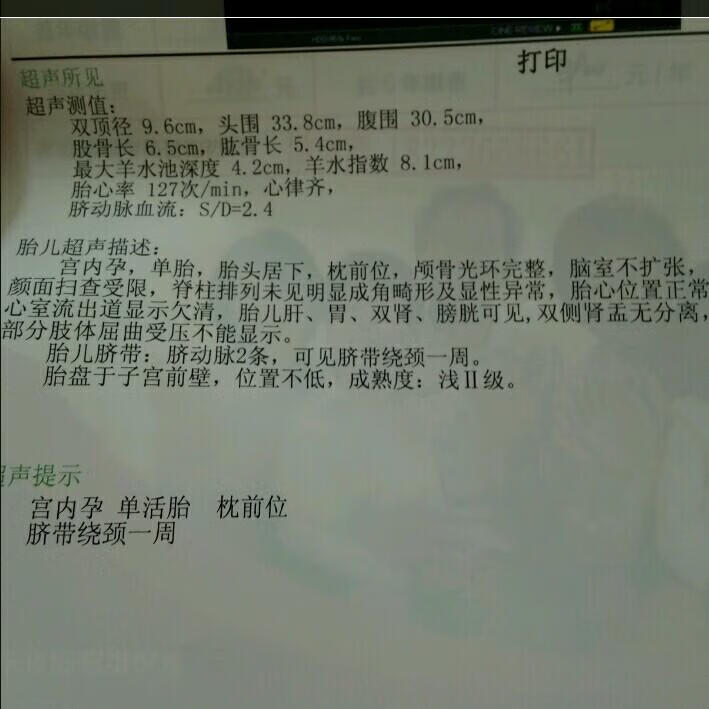 打印
超声所见
超声测值：
双顶径 9.6cm，头围 33.8cm，腹围 30.5cm，
股骨长 6.5cm，肱骨长 5.4cm，
最大羊水池深度 4.2cm，羊水指数 8.1cm，
胎心率 127次/min，心律齐，
脐动脉血流：S/D=2.4
胎儿超声描述：
宫内孕，单胎，胎头居下，枕前位，颅骨光环完整，脑室不扩张，
颜面扫查受限，脊柱排列未见明显成角畸形及显性异常，胎心位置正常
心室流出道显示欠清，胎儿肝、胃、双肾、膀胱可见,双侧肾盂无分离，
部分肢体屈曲受压不能显示。
胎儿脐带：脐动脉2条，可见脐带绕颈一周。
胎盘于子宫前壁，位置不低，成熟度：浅Ⅱ级。
超声提示
宫内孕 单活胎 枕前位
脐带绕颈一周